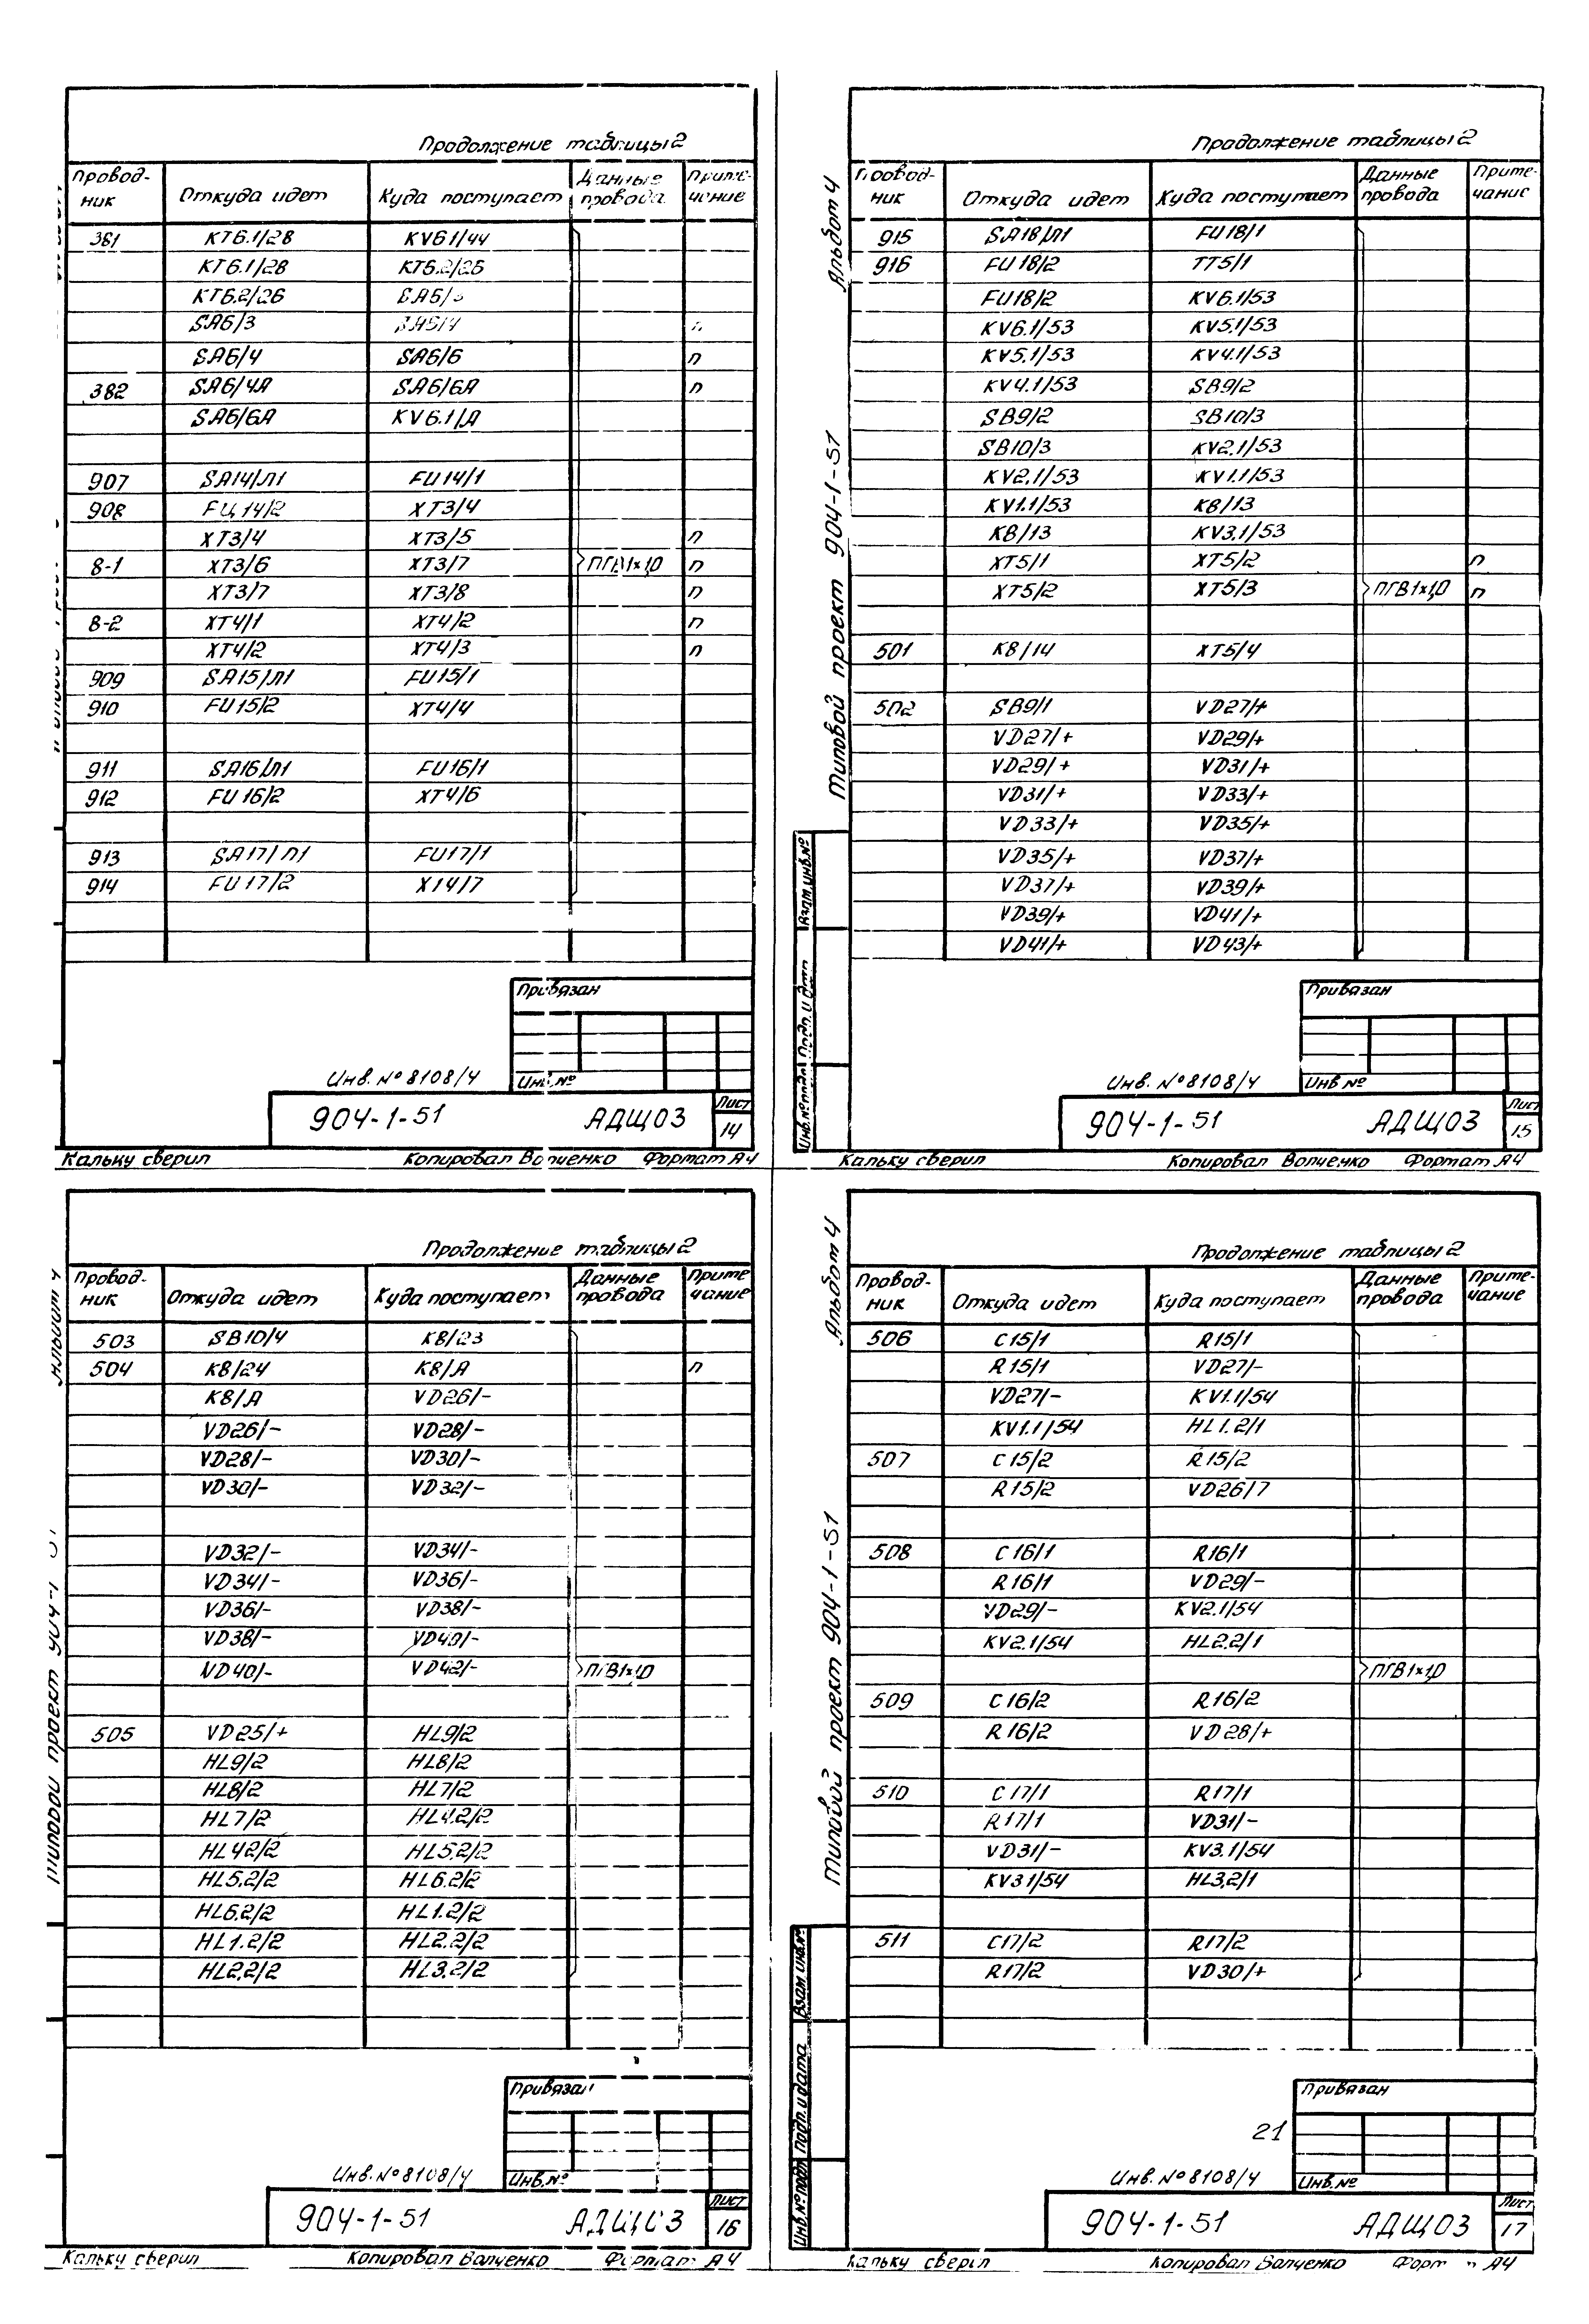 Продолжение таблицы 2
Провод- Откуда идет Куда поступает Данные Приме-
ник провода чание
381 КТ6.1/28 KV6.1/44
КТ6.1/28 КТ6.2/26
КТ6.2/26 SA6/3
SA6/3 SA6/4 п
SA6/4 SA6/6 п
382 SA6/4A SA6/6A п
SA6/6A KV6.1/A
907 SA14/Л1 FU14/1
908 FU14/2 XT3/4
XT3/4 XT3/5 п
8-1 XT3/6 XT3/7 ПГВ1×1,0 п
XT3/7 XT3/8 п
8-2 XT4/1 XT4/2 п
XT4/2 XT4/3 п
909 SA15/Л1 FU15/1
910 FU15/2 XT4/4
911 SA16/Л1 FU16/1
912 FU16/2 XT4/6
913 SA17/Л1 FU17/1
914 FU17/2 XT4/7
Привязан
Инв. №8108/4 Инв.№
904-1-51 АДЩ03 Лист
14
Кальку сверил Копировал Волченко Формат А4
Альбом 4
Типовой проект 904-1-51
Продолжение таблицы 2
Провод- Откуда идет Куда поступает Данные Приме-
ник провода чание
915 SA18/Л1 FU18/1
916 FU18/2 TT5/1
FU18/2 KV6.1/53
KV6.1/53 KV5.1/53
KV5.1/53 KV4.1/53
KV4.1/53 SB9/2
SB9/2 SB10/3
SB10/3 KV2.1/53
KV2.1/53 KV1.1/53
KV1.1/53 K8/13
K8/13 KV3.1/53
XT5/1 XT5/2 п
XT5/2 XT5/3 ПГВ1×1,0 п
501 K8/14 XT5/4
502 SB9/1 VD27/+
VD27/+ VD29/+
VD29/+ VD31/+
VD31/+ VD33/+
VD33/+ VD35/+
VD35/+ VD37/+
VD37/+ VD39/+
VD39/+ VD41/+
VD41/+ VD43/+
Взам.инв.№
Подп. и дата
Инв.№подл
Привязан
Инв. №8108/4 Инв №
904-1-51 АДЩ03 Лист
15
Кальку сверил Копировал Волченко Формат А4
Типовой проект 904-1-51
Продолжение таблицы 2
Провод- Откуда идет Куда поступает Данные Приме
ник провода чание
503 SB10/4 K8/23
504 K8/24 K8/A п
K8/A VD26/-
VD26/- VD28/-
VD28/- VD30/-
VD30/- VD32/-
VD32/- VD34/-
VD34/- VD36/-
VD36/- VD38/-
VD38/- VD40/-
VD40/- VD42/- ПГВ1×1,0
505 VD25/+ HL9/2
HL9/2 HL8/2
HL8/2 HL7/2
HL7/2 HL4.2/2
HL4.2/2 HL5.2/2
HL5.2/2 HL6.2/2
HL6.2/2 HL1.2/2
HL1.2/2 HL2.2/2
HL2.2/2 HL3.2/2
Привязан
Инв.№8108/4 Инв.№
904-1-51 АДЩ03 Лист
16
Кальку сверил Копировал Волченко Формат А4
Альбом 4
Типовой проект 904-1-51
Продолжение таблицы 2
Провод- Откуда идет Куда поступает Данные Приме-
ник провода чание
506 C15/1 R15/1
R15/1 VD27/-
VD27/- KV1.1/54
KV1.1/54 HL1.2/1
507 C15/2 R15/2
R15/2 VD26/7
508 C16/1 R16/1
R16/1 VD29/-
VD29/- KV2.1/54
KV2.1/54 HL2.2/1
ПГВ1×1,0
509 C16/2 R16/2
R16/2 VD28/+
510 C17/1 R17/1
R17/1 VD31/-
VD31/- KV3.1/54
KV3.1/54 HL3,2/1
511 C17/2 R17/2
R17/2 VD30/+
Взам.инв.№
Подп. и дата
Инв.№подл
Привязан
21
Инв. №8108/4 Инв.№
904-1-51 АДЩ03 Лист
17
Кальку сверил Копировал Волченко Формат А4